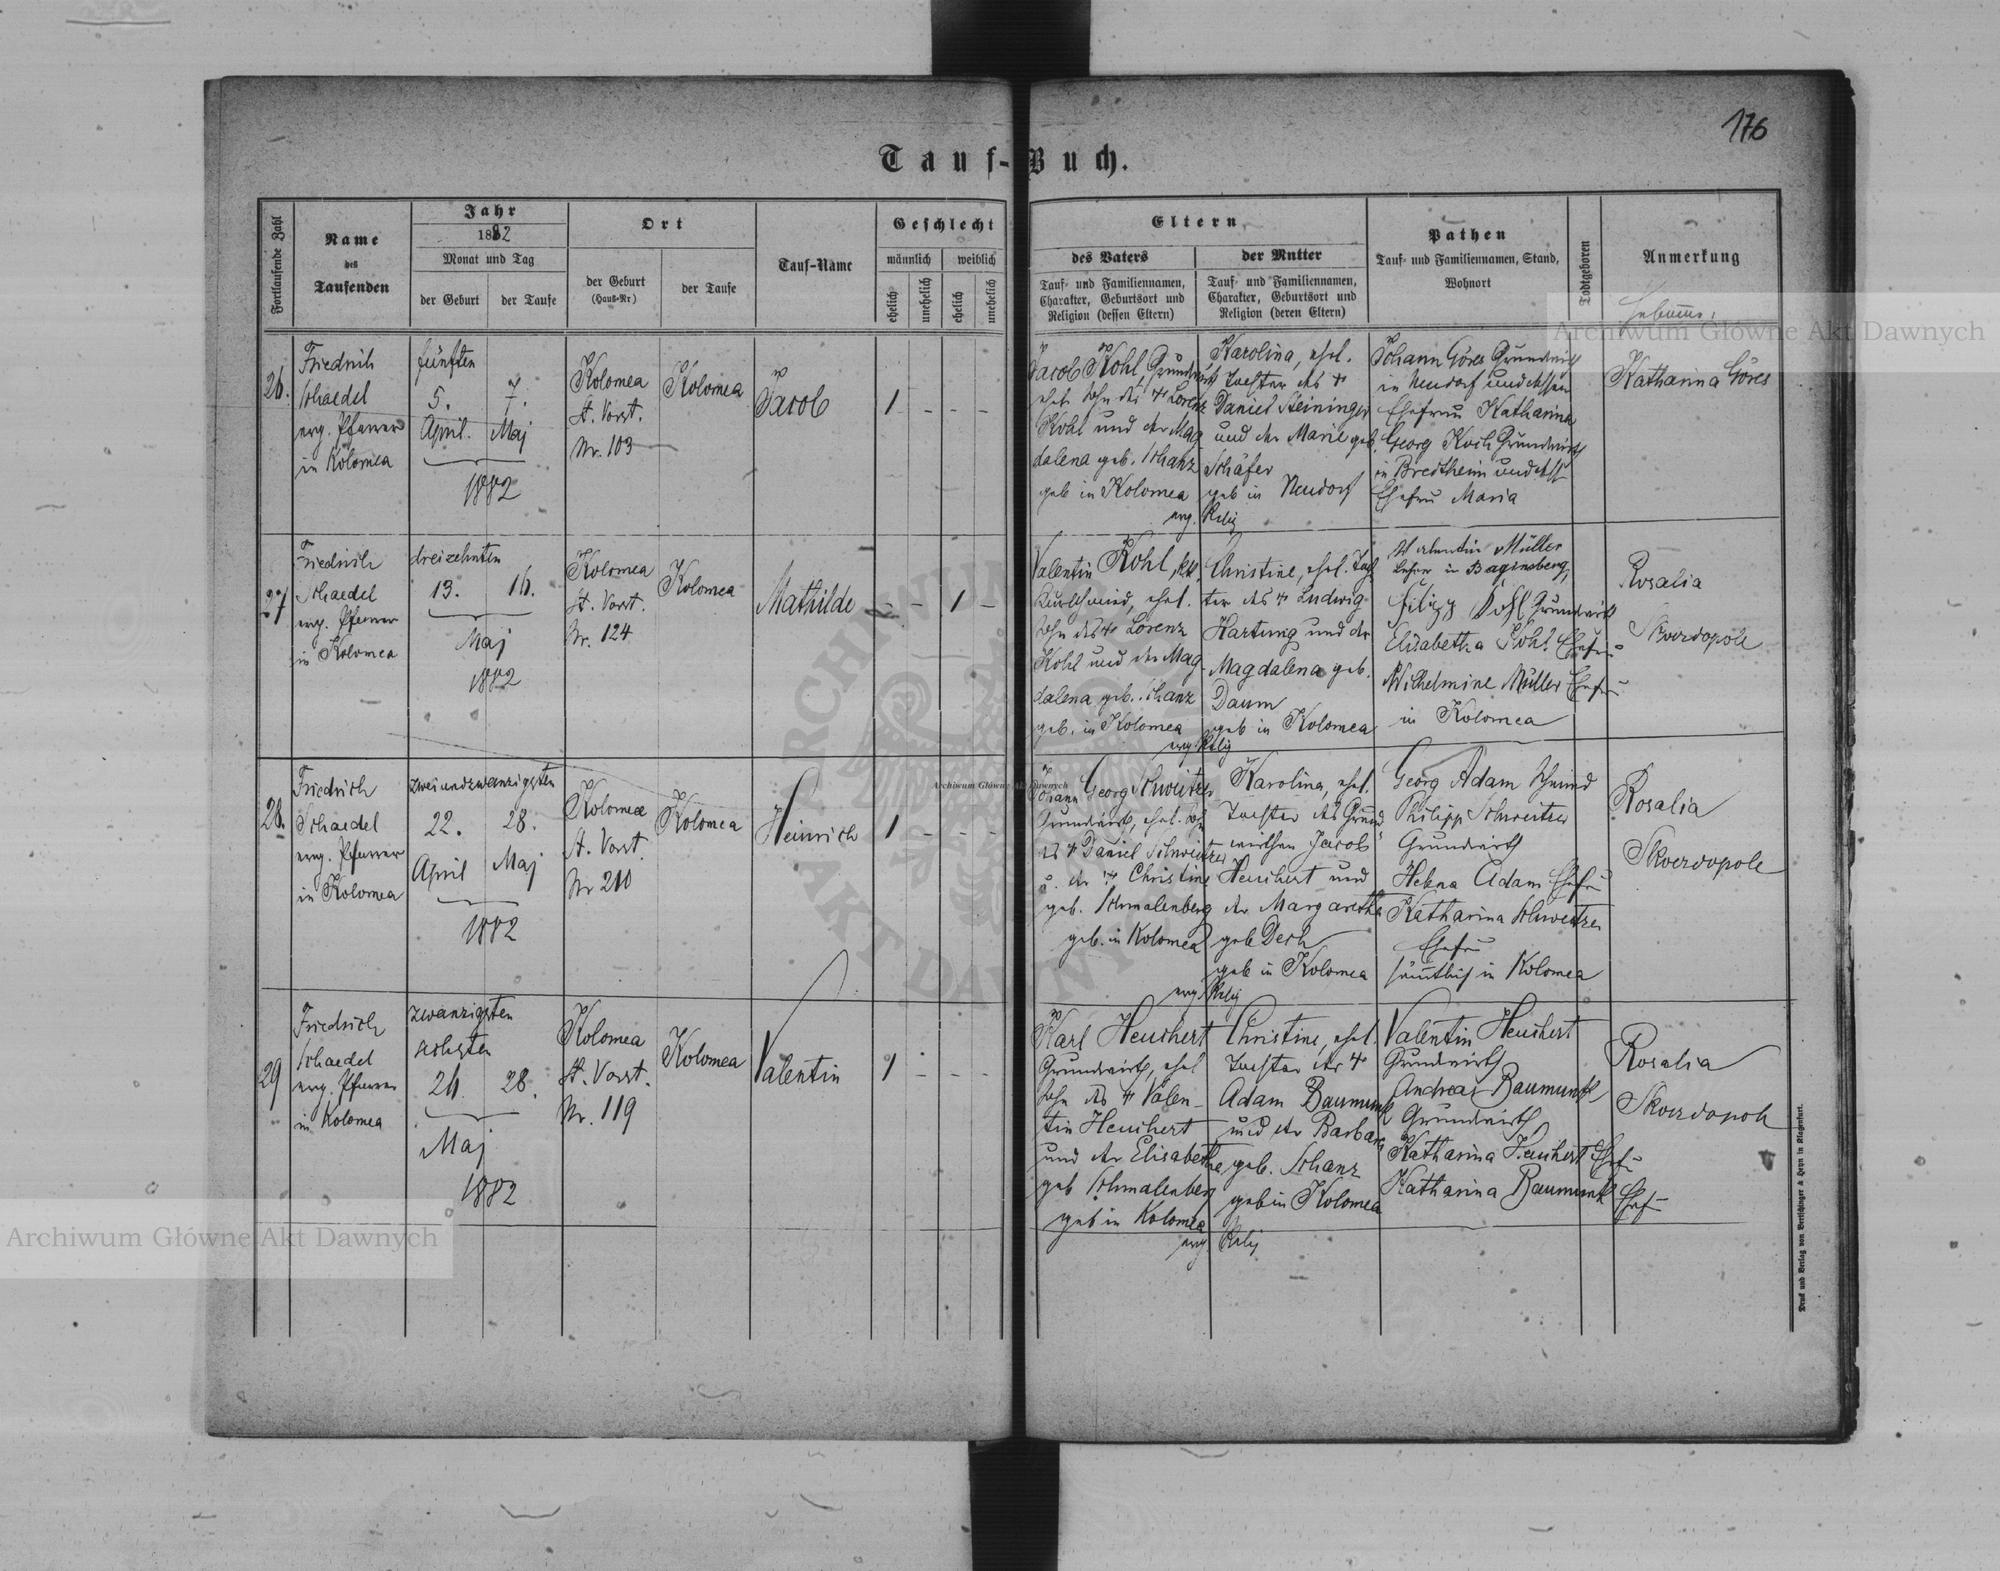 176
Tauf-Buch.
Fortlaufende Zahl
Name
des
Taufenden
Jahr
1882
Monat und Tag
der Geburt
der Taufe
Ort
der Geburt
(Haus-Nr)
der Taufe
Tauf-Name
Geschlecht
männlich
weiblich
ehelich
unehelich
ehelich
unehelich
Eltern
des Vaters
Tauf- und Familiennamen,
Charakter, Geburtsort und
Religion (dessen Eltern)
der Mutter
Tauf- und Familiennamen,
Charakter, Geburtsort und
Religion (deren Eltern)
Pathen
Tauf- und Familiennamen, Stand,
Wohnort
Todtgeboren
Anmerkung
26.
Friedrich
Schaedel
evg. Pfarrer
in Kolomea
fünften
5. 7.
April. Maj
1882
Kolomea
St. Vorst.
Nr. 103
Kolomea
Jacob
1 - - -
Jacob Kohl Grundwirth
ehel. Sohn des + Lorenz
Kohl und der Mag
dalena geb. Schanz
geb in Kolomea
evg. Relig
Karolina, ehel.
Tochter des +
Daniel Steininger
und der Marie geb.
Schäfer
geb in Neudorf
Johann Göres Grundwirth
in Neudorf und dessen
Ehefrau Katharina
Georg Koch Grundwirth
in Bredtheim und dess
Ehefrau Maria
Katharina Göres
27
Friedrich
Schaedel
evg. Pfarrer
in Kolomea
dreizehnten
13. 16.
Maj
1882
Kolomea
St. Vorst.
Nr. 124
Kolomea
Mathilde
- - 1 -
Valentin Kohl,
ehel.
Sohn des + Lorenz
Kohl und der Mag
dalena geb. Schanz
geb. in Kolomea
evg. Relig
Christine, ehel. Toch
ter des + Ludwig
Hartwig und der
Magdalena geb.
Daum
geb in Kolomea
Valentin Müller
Lehrer in Baginsberg,
Filipp Kohl Grundwirth
Elisabetha Kohl Ehefrau
Wilhelmine Müller Ehefrau
in Kolomea
Rosalia
Skverdopole
28.
Friedrich
Schaedel
evg. Pfarrer
in Kolomea
zweiundzwanzigsten
22. 28.
April Maj
1882
Kolomea
St. Vorst
Nr 210
Kolomea
Heinrich
1 - - -
Johann Georg Schweitzer
Grundwirth, ehel. Sohn
des + Daniel Schweitzer
u. der + Christine
geb. Schmalenberg
geb. in Kolomea
evg. Relig
Karolina, ehel.
Tochter des Grund
wirthen Jacob
Heuchert und
der Margaretha
geb Desch
geb in Kolomea
Georg Adam Schmied
Philipp Schweitzer
Grundwirth
Helena Adam Ehefrau
Katharina Schweitzer
Ehefrau
sämtlich in Kolomea
Rosalia
Skverdopole
29
Friedrich
Schaedel
evg. Pfarrer
in Kolomea
zwanzigsten
sechsten
26. 28.
Maj
1882
Kolomea
St. Vorst.
Nr. 119
Kolomea
Valentin
1 - - -
Karl Heuchert
Grundwirth, ehel
Sohn des + Valen-
tin Heuchert
und der Elisabethe
geb Schmalenberg
geb in Kolomea
evg. Relig
Christine, ehel.
Tochter des +
Adam Baumunk
und der Barbara
geb. Schanz
geb in Kolomea
Valentin Heuchert
Grundwirth
Andreas Baumunk
Grundwirth
Katharina Heuchert Ehefr
Katharina Baumunk Ehef
Rosalia
Skverdopole
Druck und Verlag von Bertschinger & Heyn in Klagenfurt.
Archiwum Główne Akt Dawnych
Archiwum Główne Akt Dawnych
Archiwum Główne Akt Dawnych
ARCHIWUM
AKT DAWNYCH